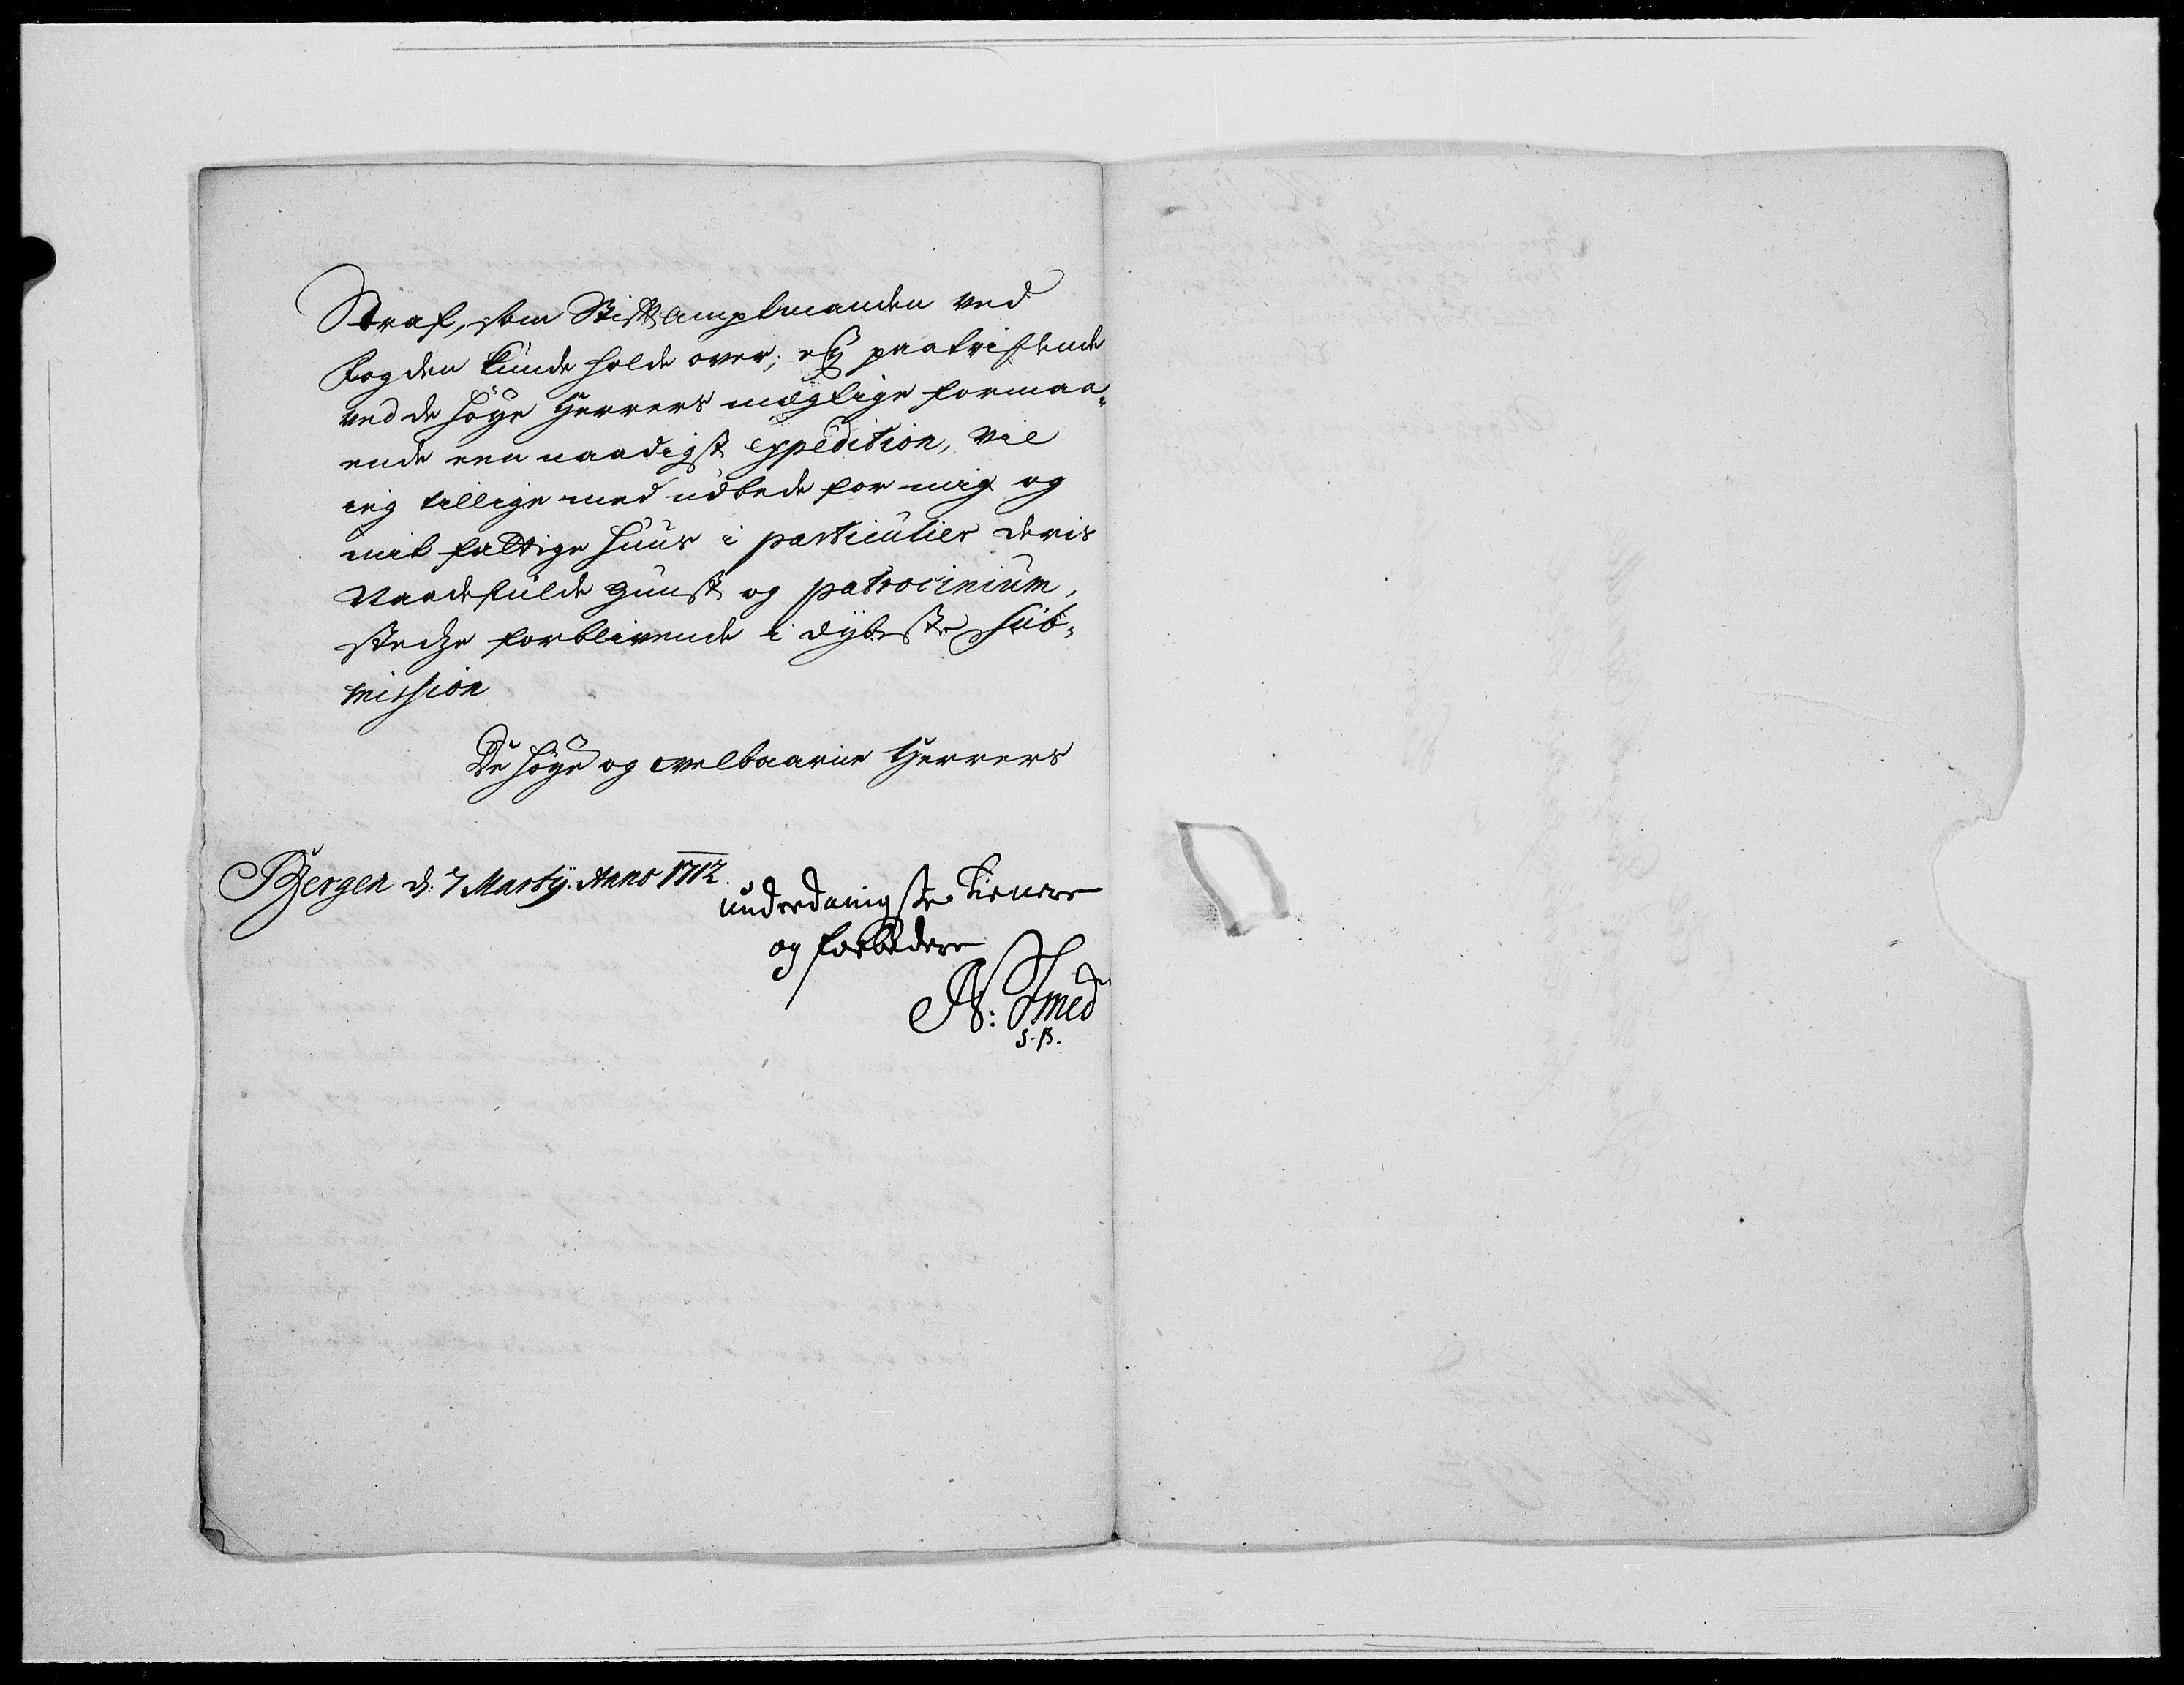 Straf, som Stifftamptmanden ved
Fogden kunde holde over; paafristende
ved de höye Herrers mægtige formaa-
ende een naadigst expedition, vil
ieg tillige med udbede for mig og
mit fattige Huus i particulier deris
Naadefulde gunst og patrocinium,
stedze forblivende i dÿbeste sub-
mission
De höye og velbaarne Herrers
Bergen d: 7 Martÿ. Anno 1712.
underdanigste tienere
og forbedere
N: Smed
S. B.